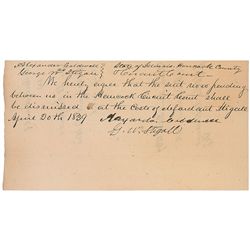 Alexander Caldwell } State of Indiana Hancock County
George W. Stegall } Circuit Court
We hereby agree that the suit now pending
between us in the Hancock Circuit Court shall
be dismissed at the costs of defendant Stigall
April 20th 1839
G. W. Stigall